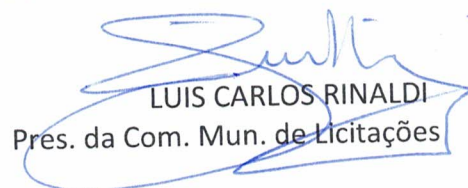 LUIS CARLOS RINALDI
Pres. da Com. Mun. de Licitações